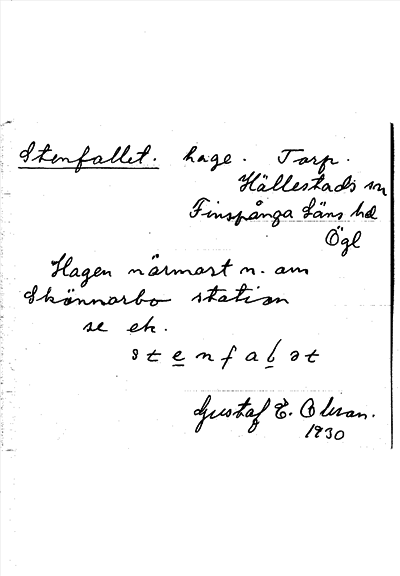 Stenfallet. hage. Torp.
Hällestads sn
Finspånga Läns hd
Ögl
Hagen närmart n. om
Skönnarbo station
se ek.
stenfalət
Gustaf E. Olsson.
1930